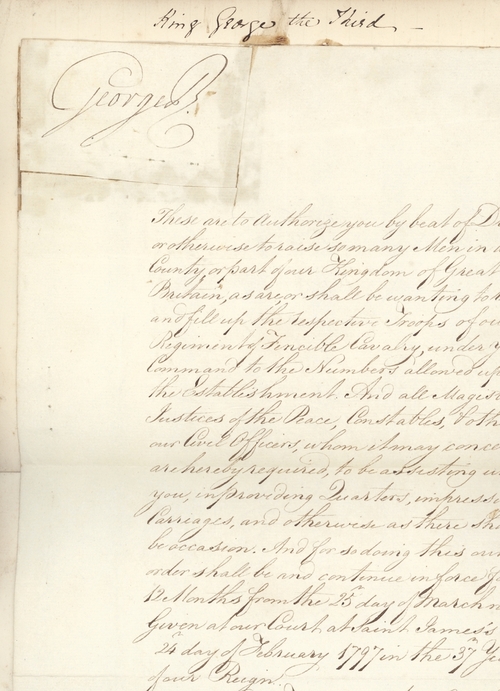 King George the Third
George R.
These are to Authorize you by beat of
or otherwise to raise so many Men in
County or part of our Kingdom of Great
Britain, as are, or shall be wanting to
and fill up the respective Troops of
Regiment of Fencible Cavalry, under
Command to the Numbers allowed
the Establishment. And all
Justices of the Peace, Constables,
our Civil Officers, whom it may
are hereby required, to be assisting
you, in providing Quarters,
Carriages, and otherwise as there
be occasion. And for so doing this
order shall be and continue in force
12 Months from the 25th day of March
Given at our Court at Saint James's
24th day of February 1797 in the 37th
of our Reign.